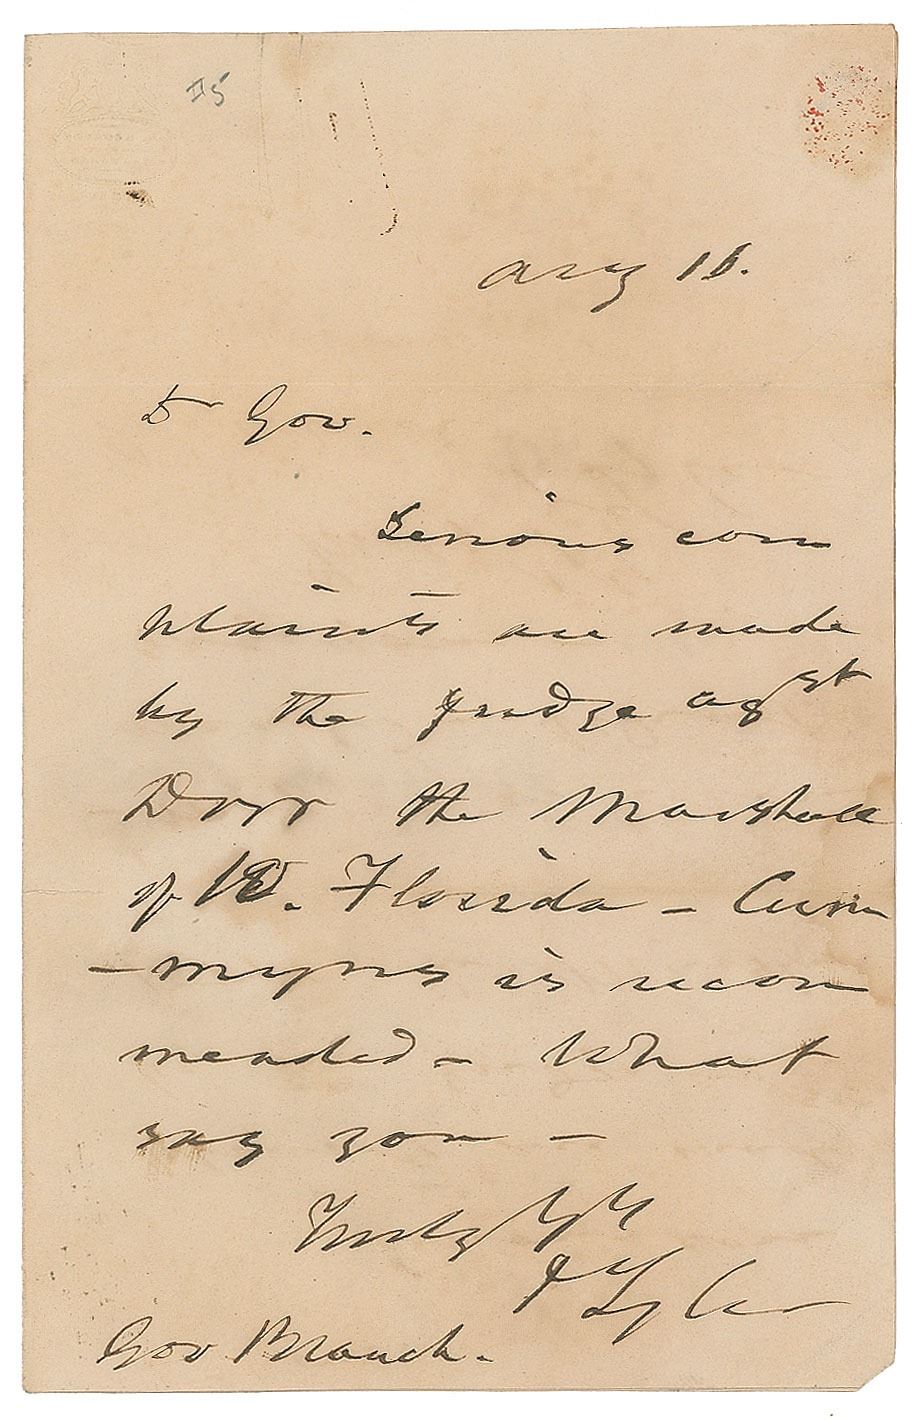 Aug 16.
Dr Gov.
Serious com
plaints are made
by the judge agst
Dorr the Marshall
of W. Florida – Cum
– myns is recom
mended – What
say you –
Truly Yrs
J Tyler
Gov Branch.